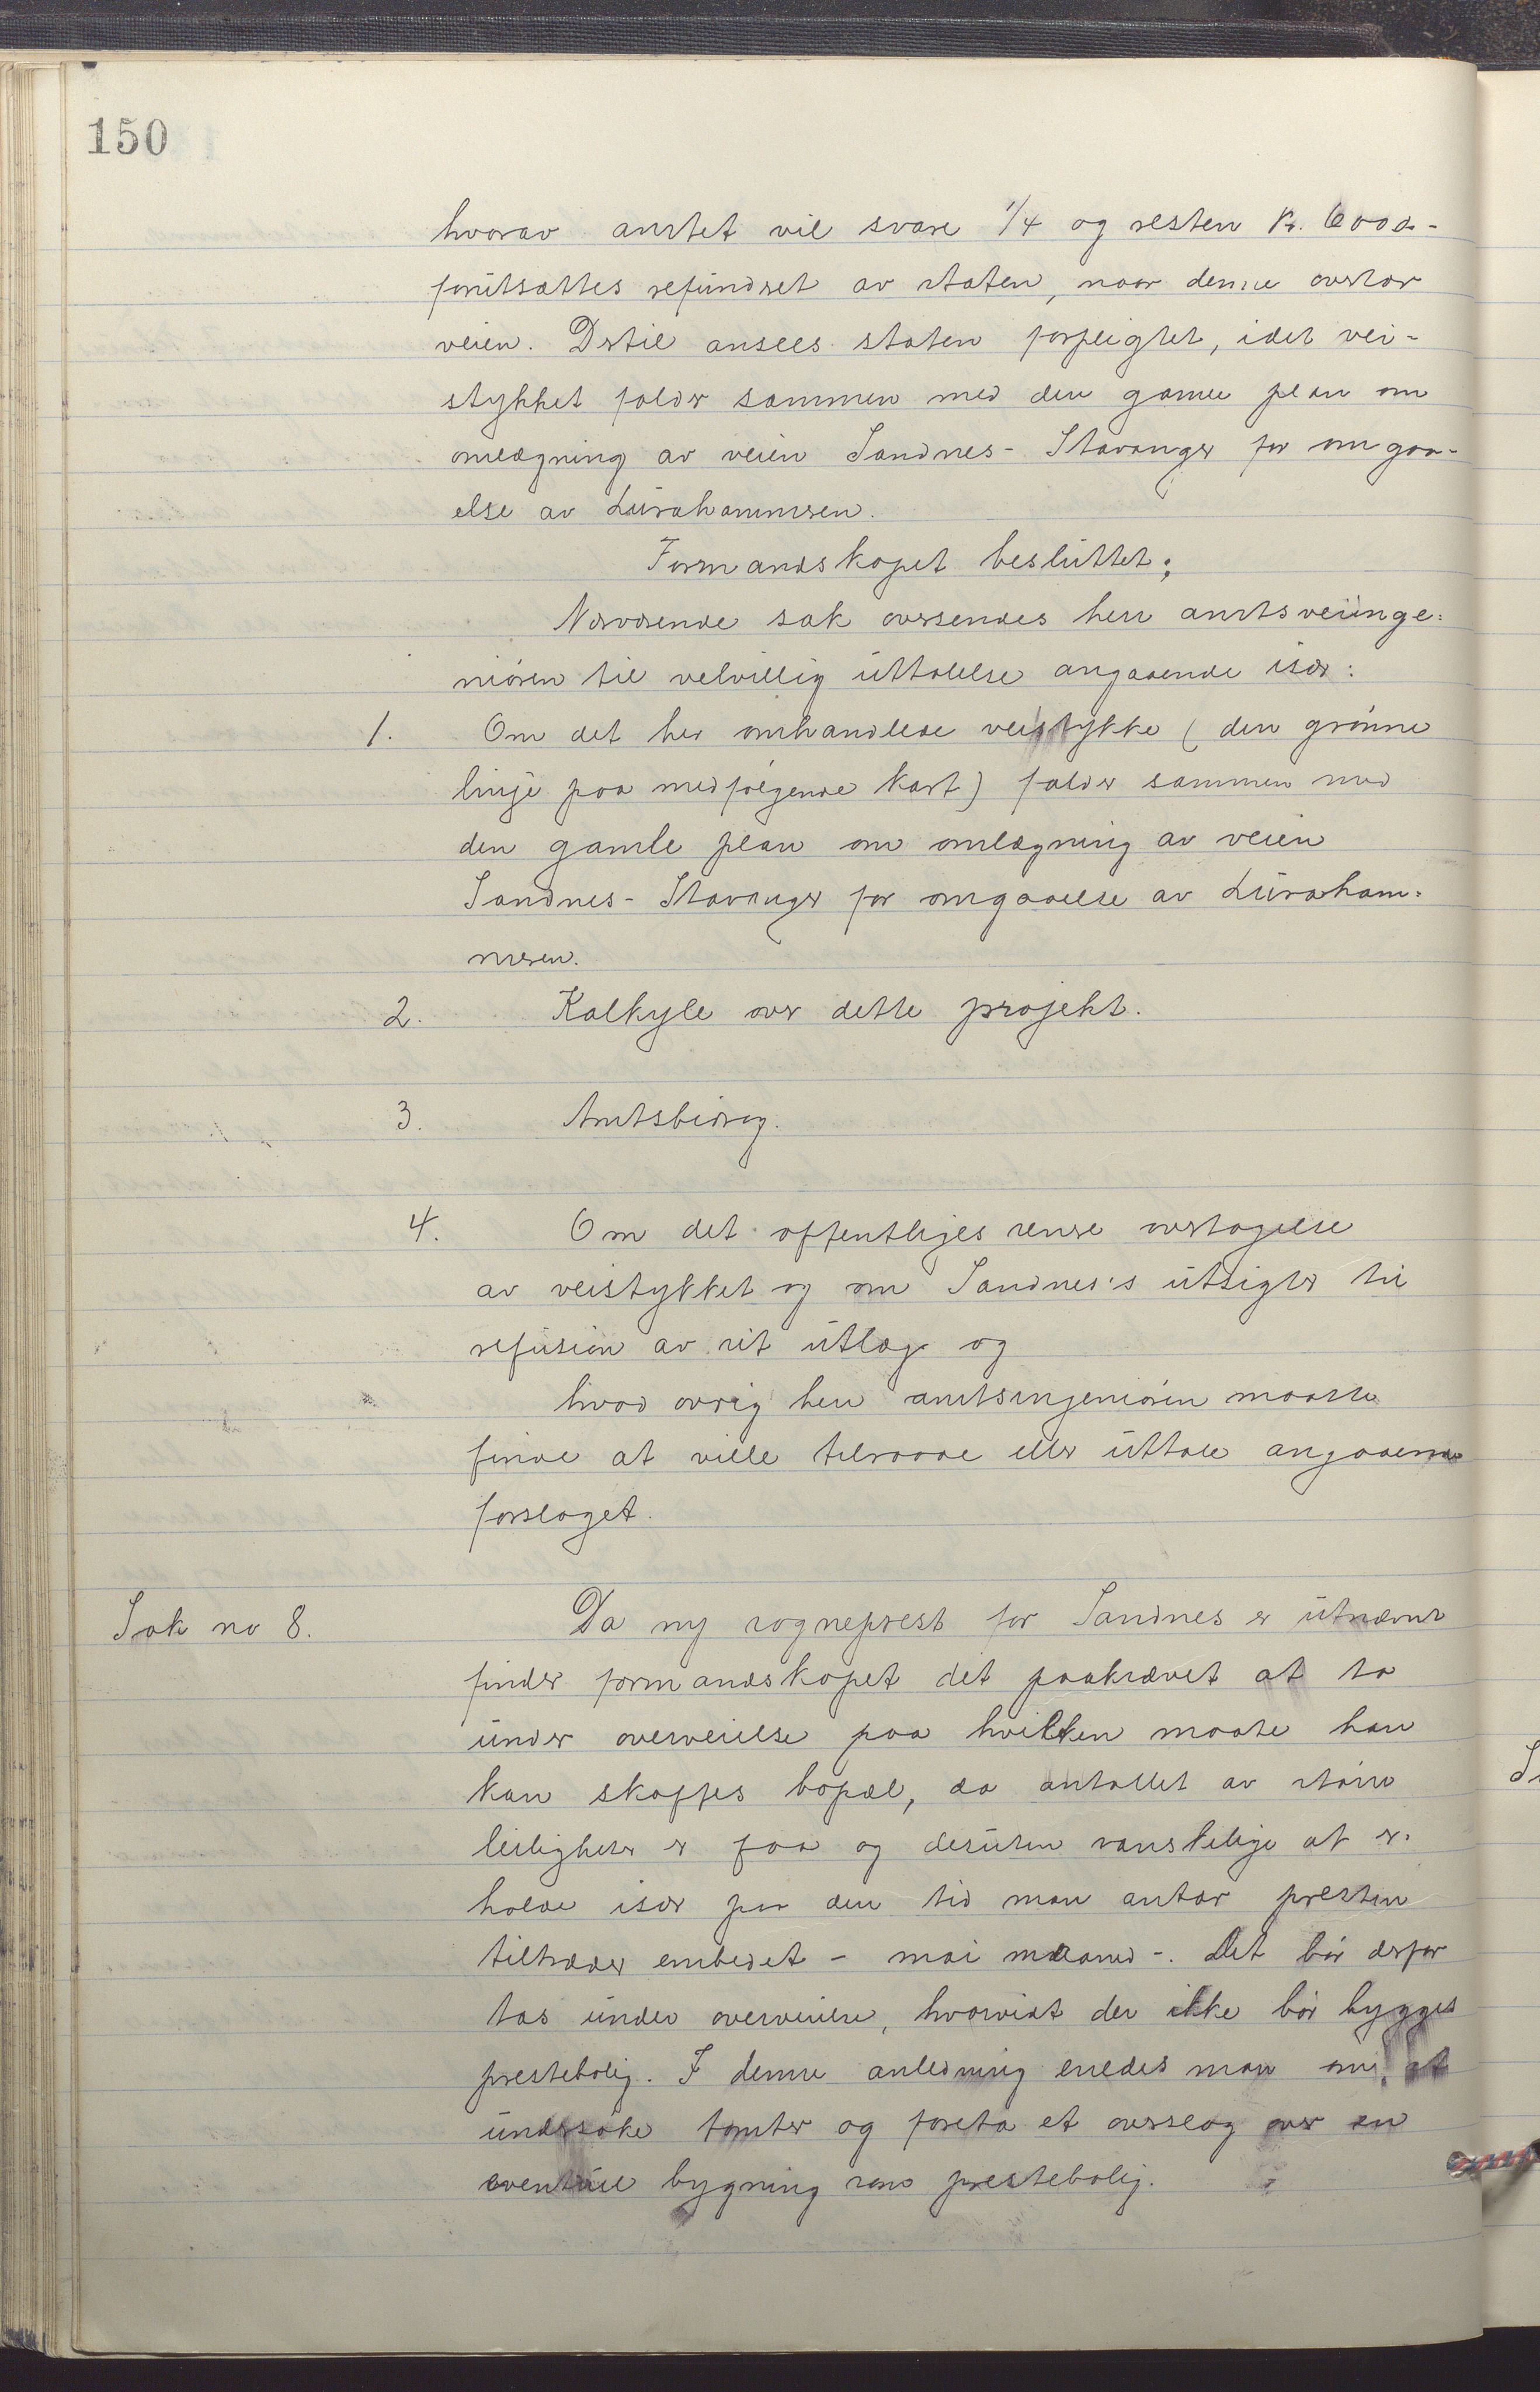 150
hvorav amtet vil svare 1/4 og resten kr. 6000.-
forutsættes refundret av staten, naar denne overtar
veien. Dertil ansees staten forpligtet, idet vei-
stykket falder sammen med den gamle plan om
omlægning av veien Sandnes - Stavanger for omgaa-
else av Lurahammeren.
Formandskapet besluttet:
Nærværende sak oversendes herr amtsveiinge-
niøren til velvillig uttalelse angaaende især:
1. Om det her omhandlede veistykke (den grønne
linje paa medfølgende kart) falder sammen med
den gamle plan om omlægning av veien
Sandnes - Stavanger for omgaaelse av Luraham-
meren.
2. Kalkyle over dette projekt.
3. Amtsbidrag.
4. Om det offentliges senere overtagelse
av veistykket og om Sandnes's utsigter til
refusion av sit utlæg og
hvad øvrig herr amtsingeniøren maatte
finde at ville tilraade eller uttale angaaende
forslaget.
Sak no 8. Da ny sogneprest for Sandnes er utnævnt
finder formandskapet det paakrævet at ta
under overveielse paa hvilken maate han
kan skaffes bopæl, da antallet av større
leiligheter er faa og desuten vanskelige at er-
holde især paa den tid man antar presten
tiltræder embedet - mai maaned -. Det bør derfor
tas under overveielse, hvorvidt der ikke bør bygges
prestebolig. I denne anledning enedes man om at
undersøke tomter og foreta et overslag over en
eventuel bygning som prestebolig.